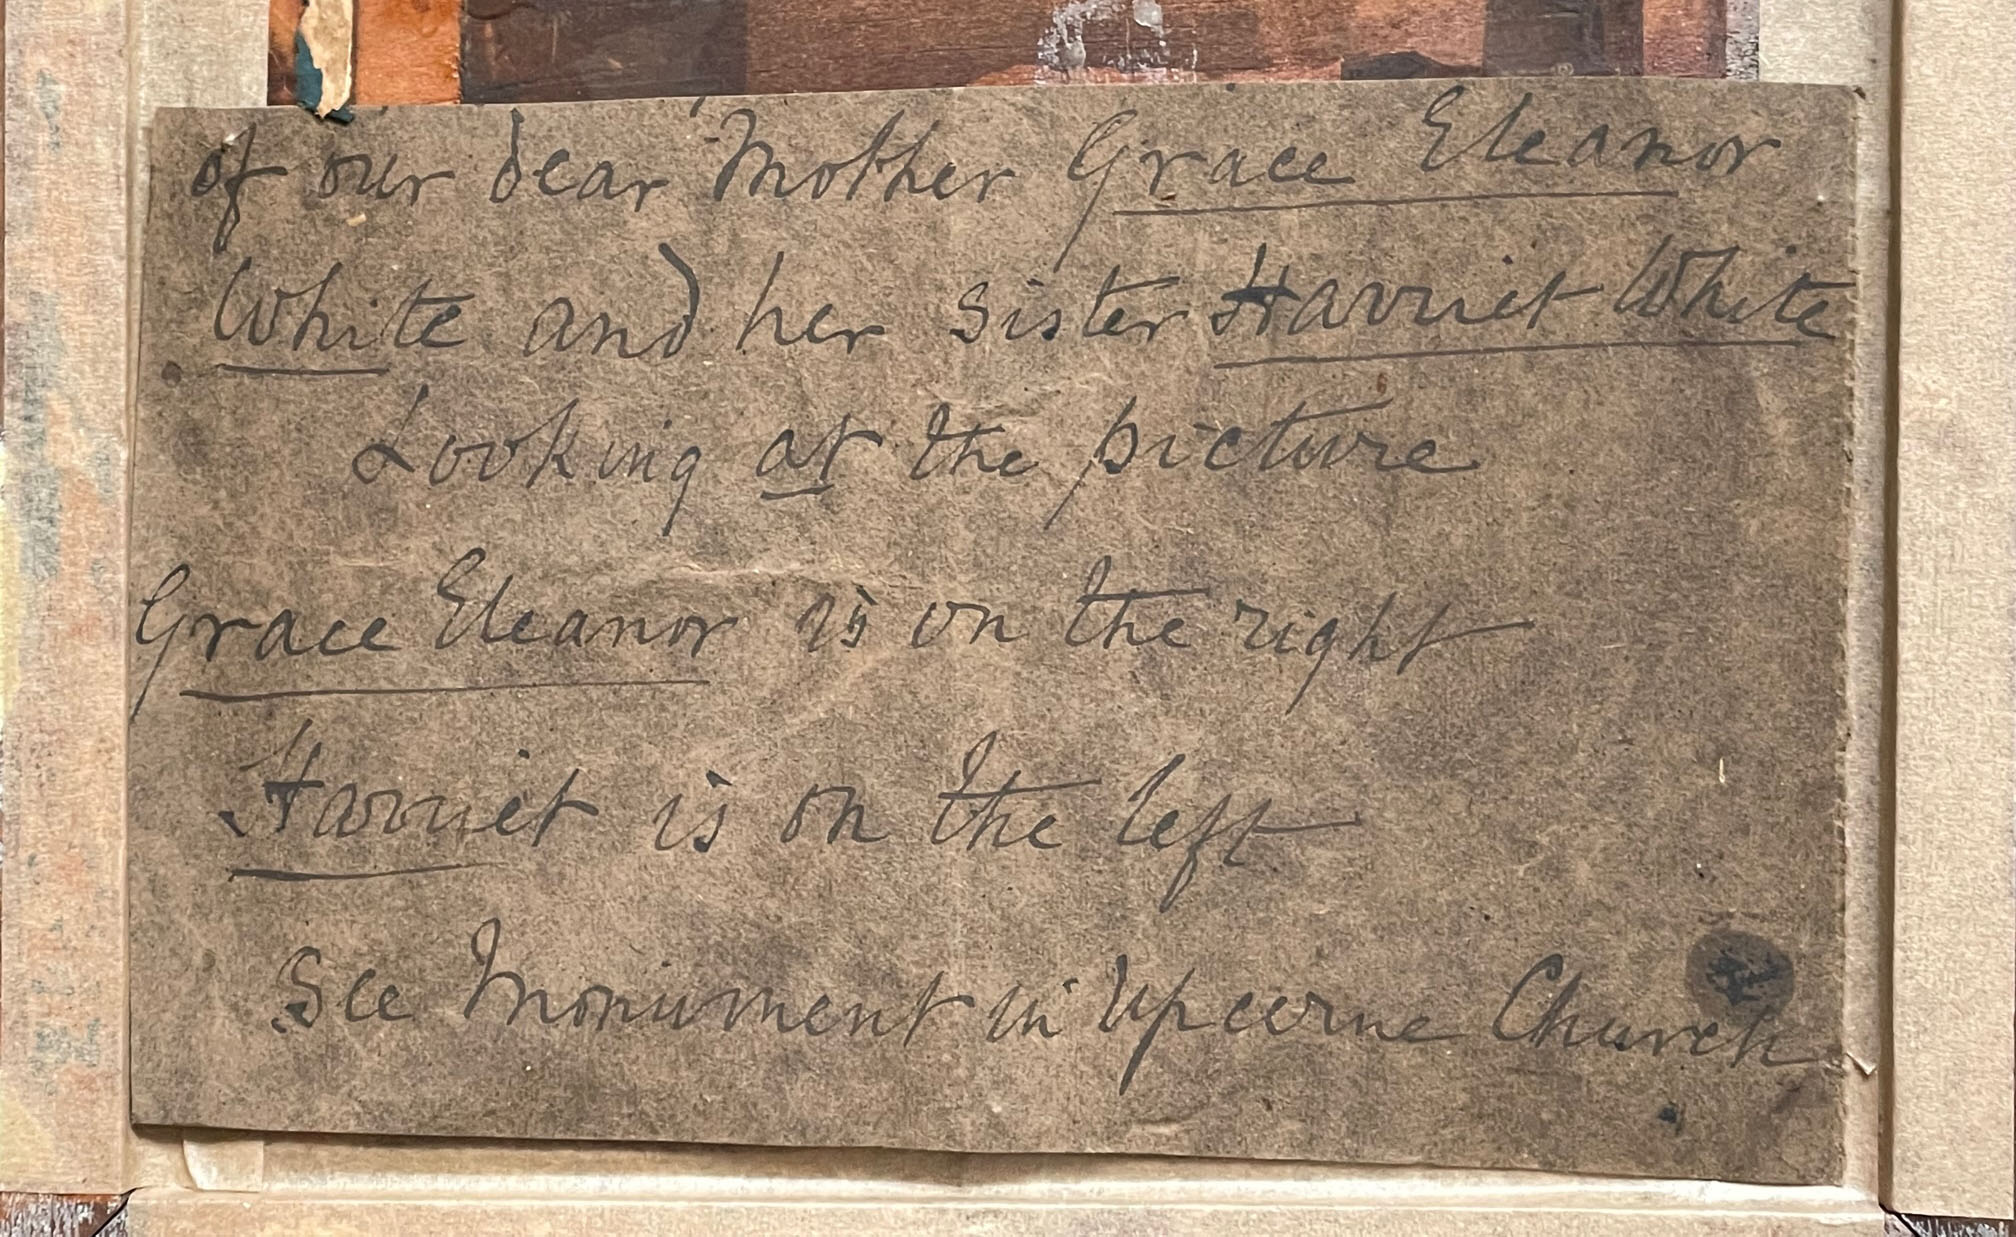 of our dear Mother Grace Eleanor
White and her sister Harriet White
Looking at the picture
Grace Eleanor is on the right
Harriet is on the left
See Monument in Upcerne Church